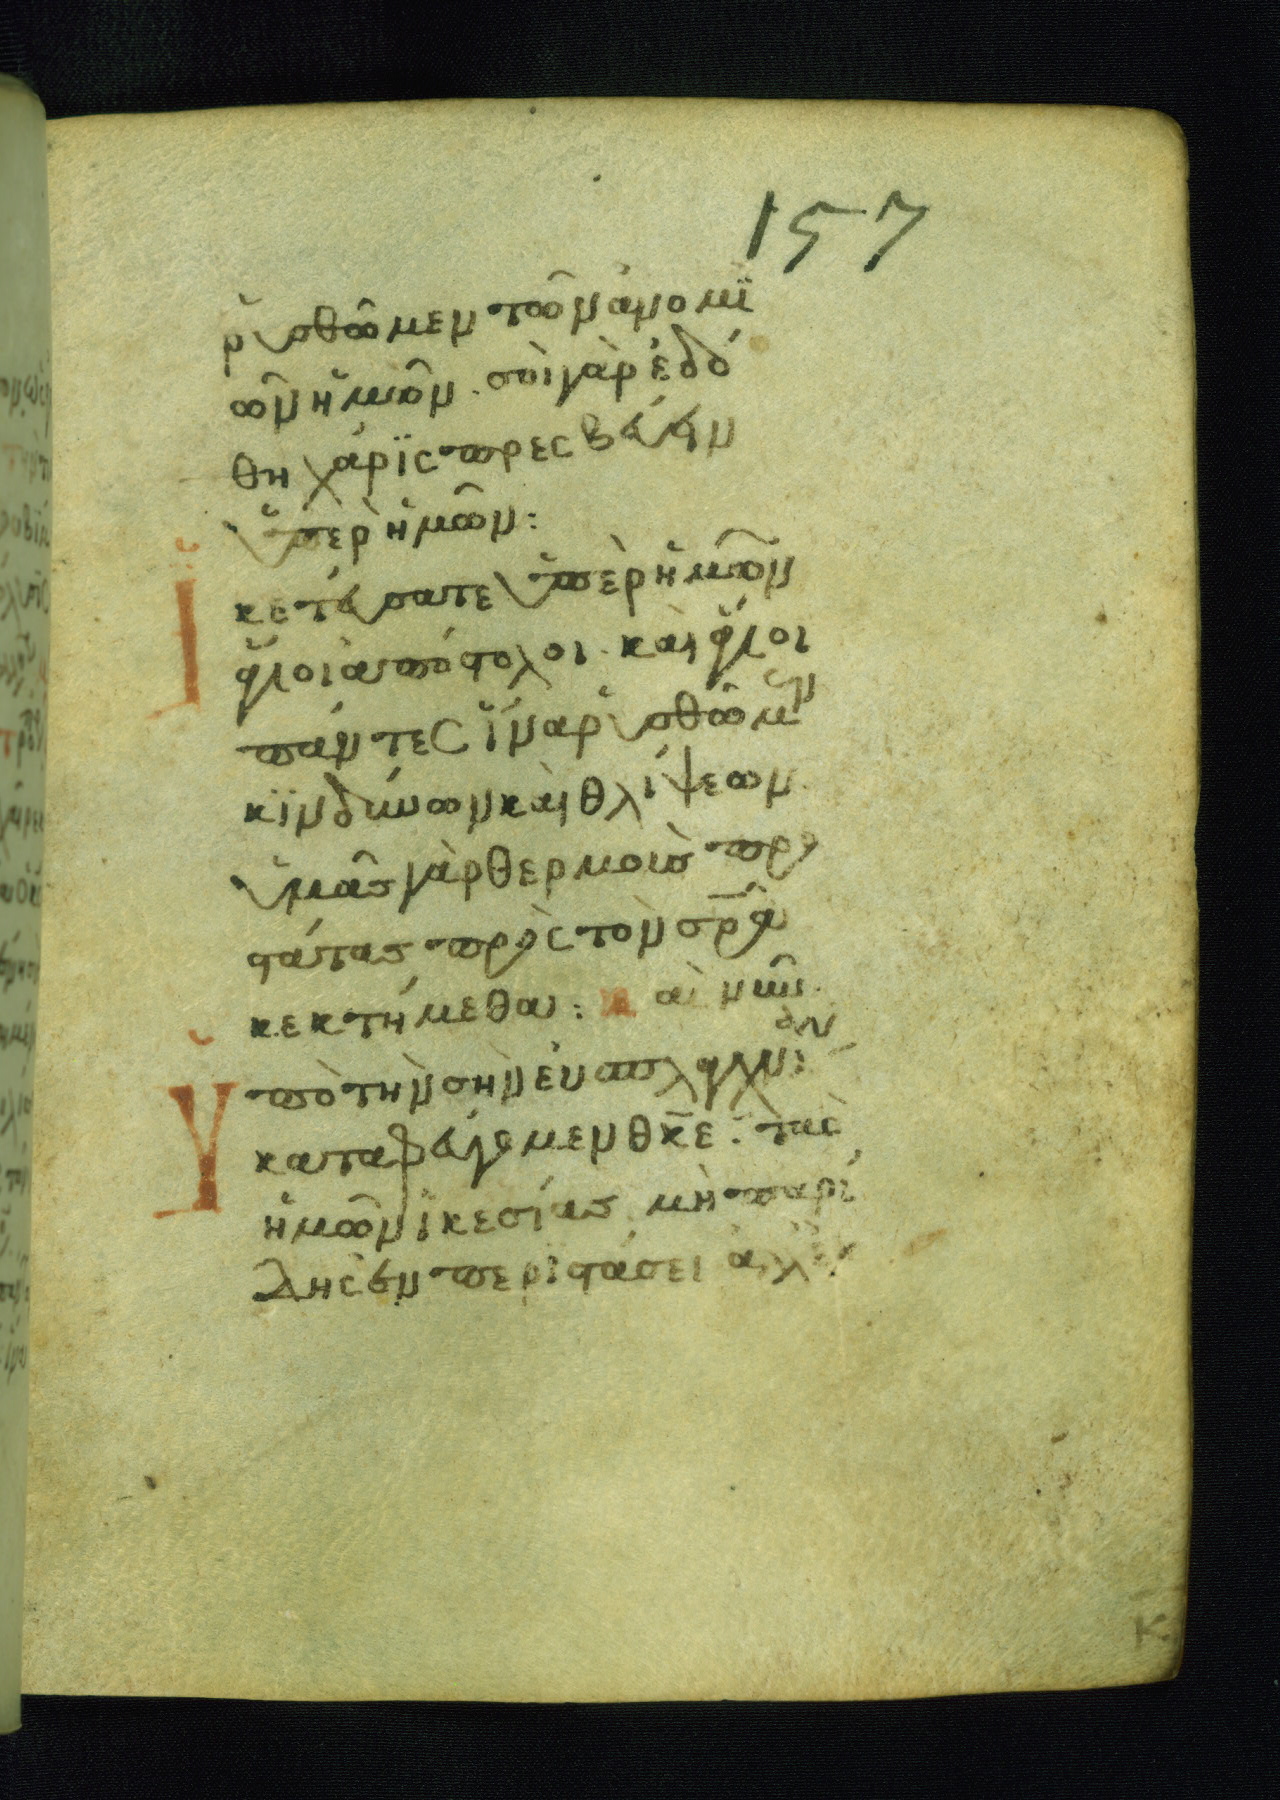 157
ῥυσθῶμεν τῶν ἀνομϊ
ῶν ἡμῶν. σοὶ γὰρ ἐδό
θη χάρϊς πρεσβεύειν
ὑπὲρ ἡμῶν:
Ἱκετεύσατε ὑπὲρ ἡμῶν
ἅγιοι ἀπόστολοι. καὶ ἅγιοι
πάντες ἵνα ῥυσθῶμεν
κϊνδύνων καὶ θλίψεων.
ὑμᾶς γὰρ θερμοὺς προ
στάτας πρὸς τὸν σρ̅α
κεκτήμεθα: καὶ νῦν.
Ὑπὸ τὴν σὴν εὐσπλαγχνίαν
καταφεύγομεν θκ̅ε: τὰς
ἡμῶν ἱκεσίας μὴ παρί
δης ἐν περιστάσει ἀλλ'
κ